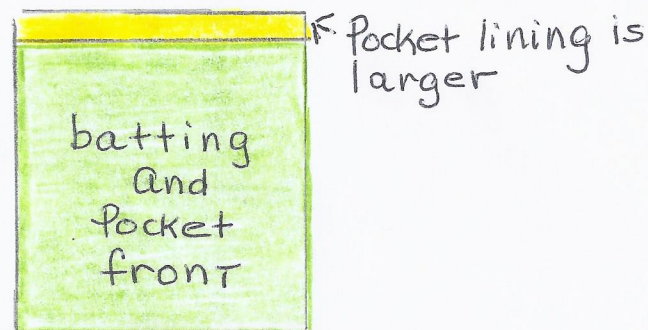 Pocket lining is
larger
batting
and
Pocket
front